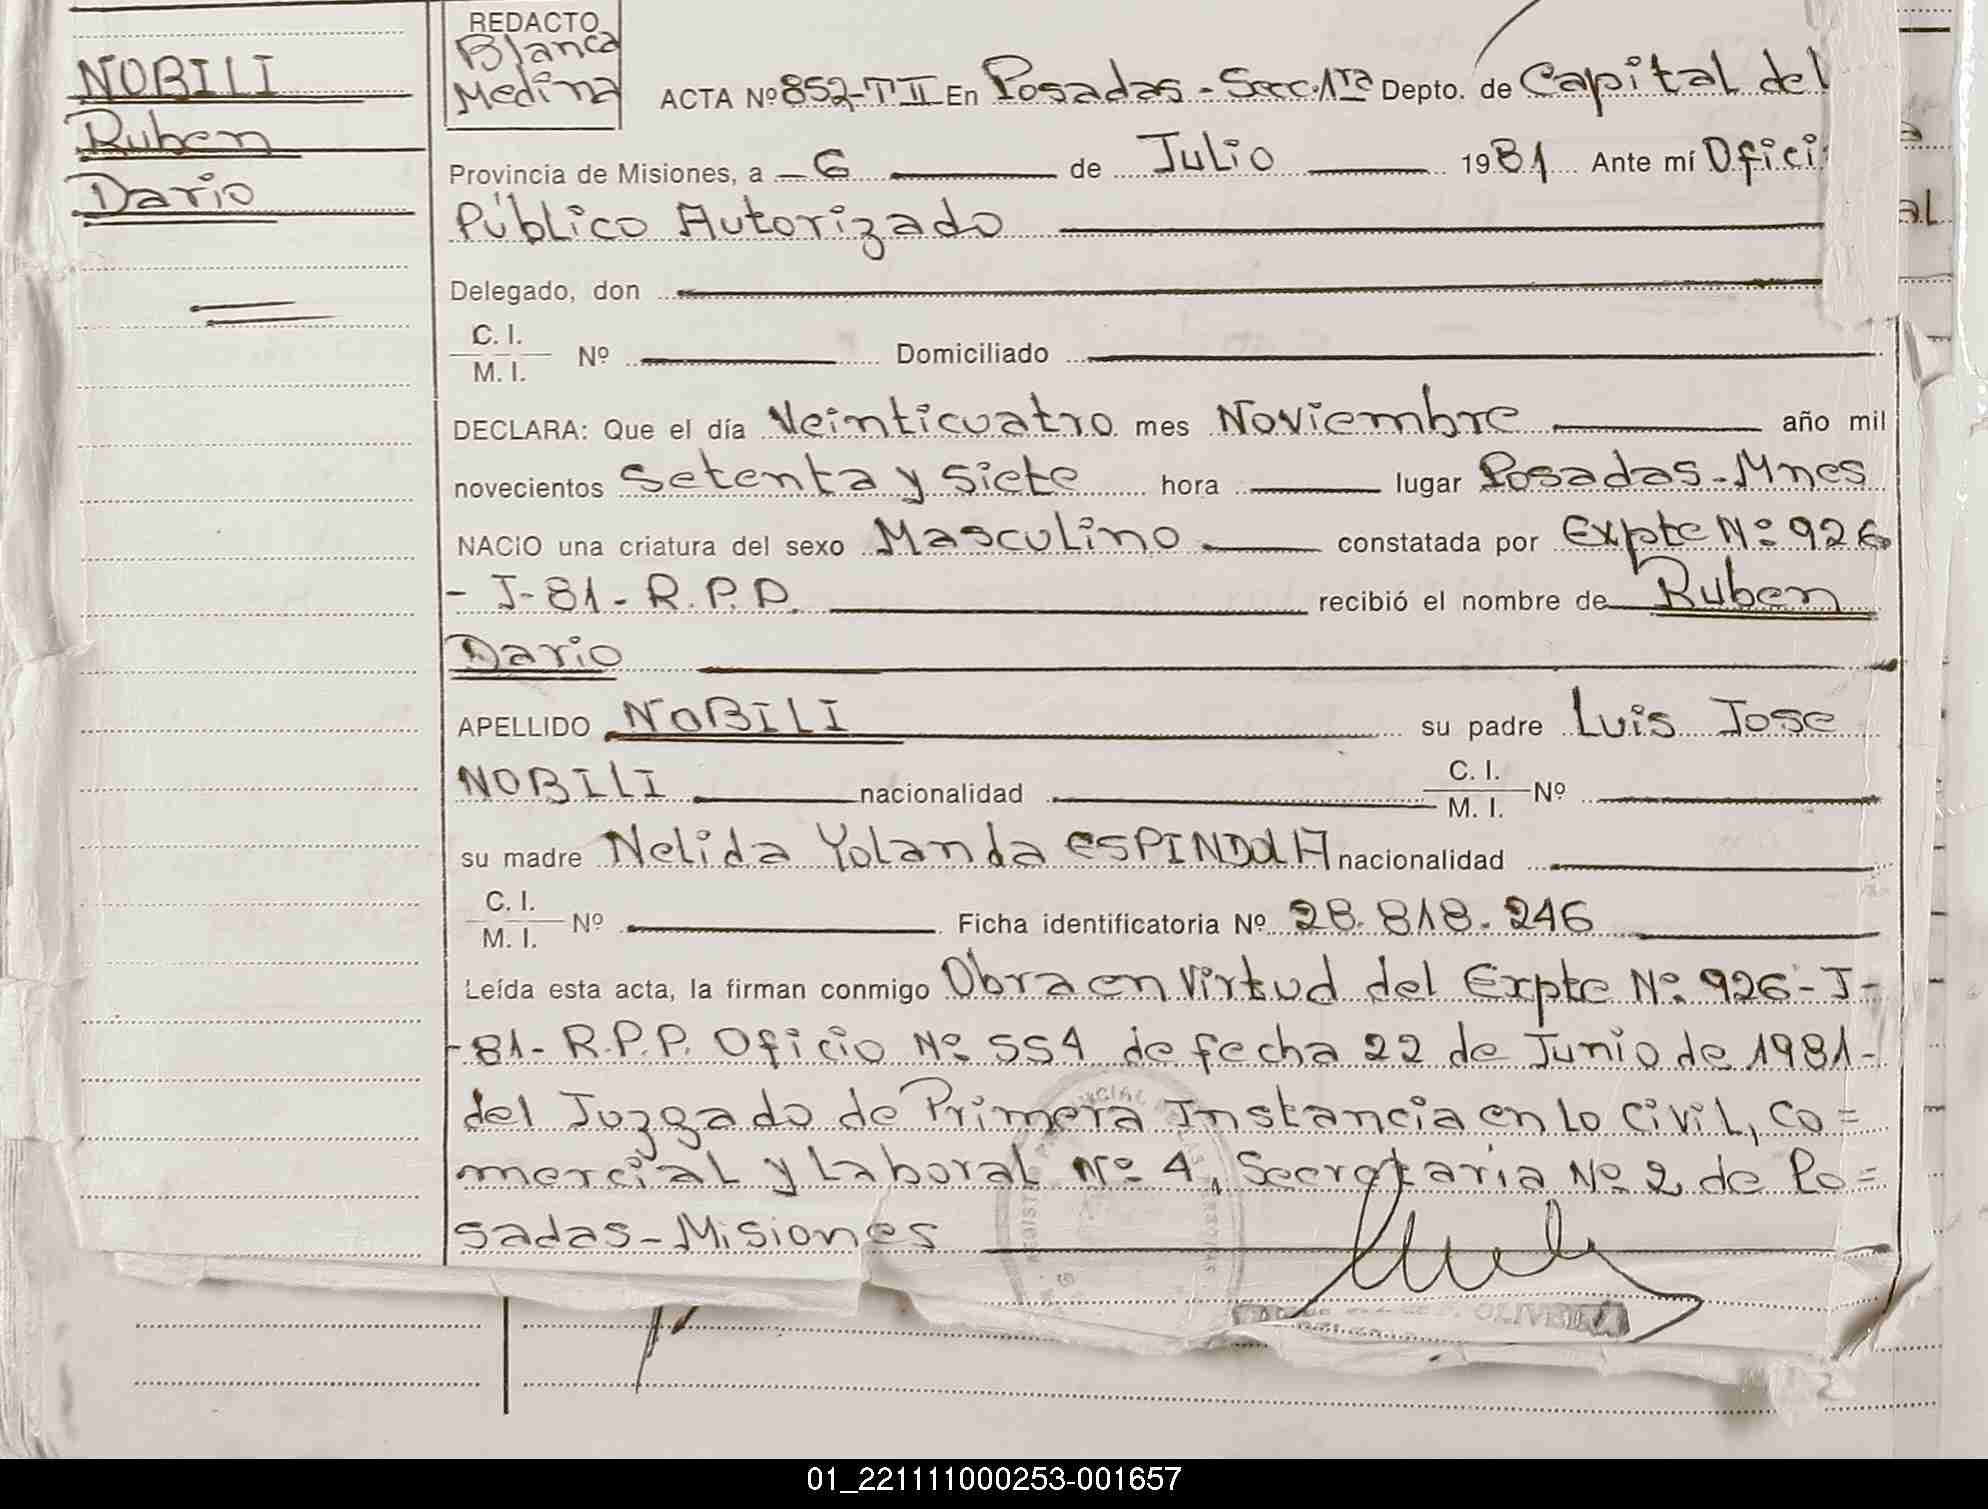 NOBILI
Ruben
Dario
REDACTO
Blanca
Medina
ACTA Nº 852-TII En Posadas - Secc. 1ra Depto. de Capital del
Provincia de Misiones, a - 6 de Julio 1981 Ante mí Ofici
Público Autorizado
Delegado, don
C. I.
M. I. Nº Domiciliado
DECLARA: Que el día Veinticuatro mes Noviembre año mil
novecientos Setenta y siete hora lugar Posadas-Mnes
NACIO una criatura del sexo Masculino constatada por Expte Nº 926
- J-81-R.P.P. recibió el nombre de Ruben
Dario
APELLIDO NOBILI su padre Luis Jose
NOBILI nacionalidad C. I. M. I. Nº
su madre Nelida Yolanda ESPINDOLA nacionalidad
C. I.
M. I. Nº Ficha identificatoria Nº 28.818.246
Leída esta acta, la firman conmigo Obra en Virtud del Expte Nº 926-J-
-81-R.P.P. Oficio Nº 554 de fecha 22 de Junio de 1981-
del Juzgado de Primera Instancia en lo Civil, Co=
mercial y Laboral Nº 4, Secretaria Nº 2 de Po=
sadas-Misiones
OLIVEIRA
01_221111000253-001657